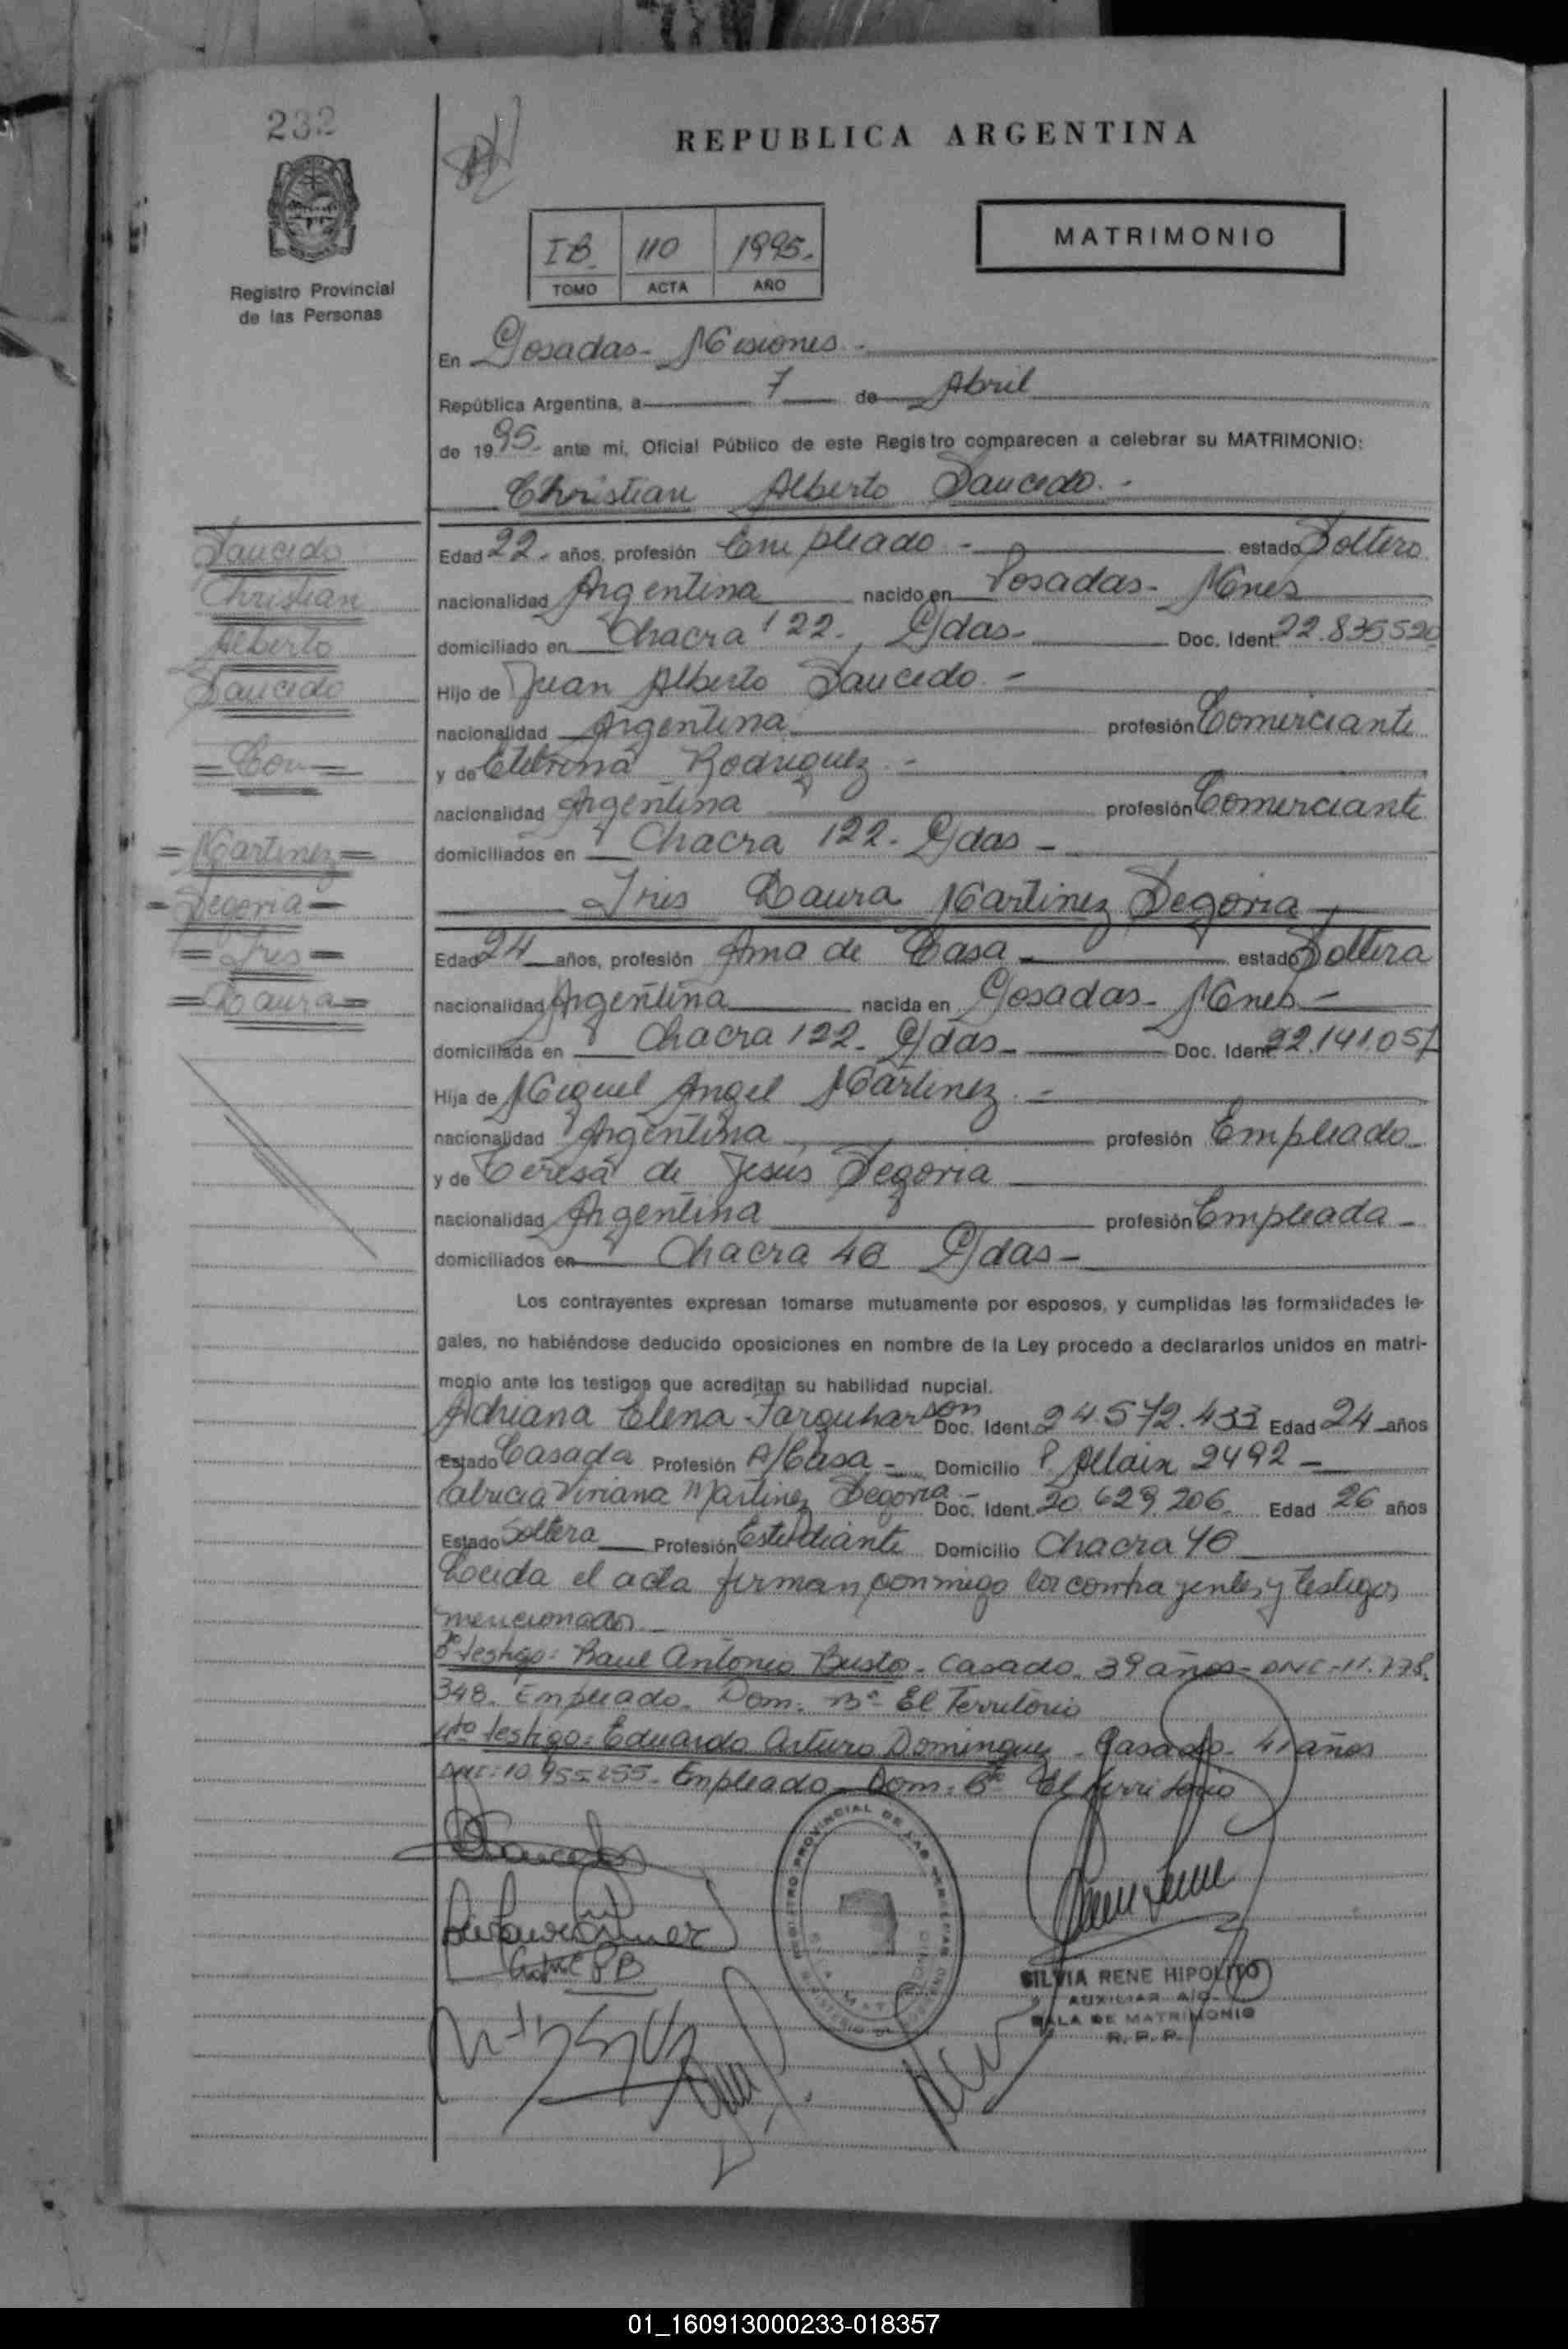 232
REPUBLICA ARGENTINA
Registro Provincial
de las Personas
IB 110 1995.
TOMO ACTA AÑO
MATRIMONIO
En Posadas - Misiones -
República Argentina, a 7 de Abril
de 1995. ante mi, Oficial Público de este Registro comparecen a celebrar su MATRIMONIO:
Christian Alberto Saucedo. -
Saucedo
Christian
Alberto
Saucedo
= Con =
= Martinez =
= Segovia =
= Iris =
= Laura =
Edad 22. años, profesión Empleado - estado Soltero
nacionalidad Argentina nacido en Posadas - Mnes
domiciliado en Chacra 122. Pdas - Doc. Ident. 22.835520
Hijo de Juan Alberto Saucedo -
nacionalidad Argentina profesión Comerciante
y de Etelvina Rodriguez -
nacionalidad Argentina profesión Comerciante
domiciliados en Chacra 122. Pdas -
Iris Laura Martinez Segovia
Edad 24 años, profesión Ama de Casa - estado Soltera
nacionalidad Argentina nacida en Posadas - Mnes -
domiciliada en Chacra 122. Pdas - Doc. Ident. 22.141.057
Hija de Miguel Angel Martinez -
nacionalidad Argentina profesión Empleado
y de Teresa de Jesús Segovia
nacionalidad Argentina profesión Empleada -
domiciliados en Chacra Pdas -
Los contrayentes expresan tomarse mutuamente por esposos, y cumplidas las formalidades le-
gales, no habiéndose deducido oposiciones en nombre de la Ley procedo a declararlos unidos en matri-
monio ante los testigos que acreditan su habilidad nupcial.
Adriana Elena Farquharson Doc. Ident. 24.572.433 Edad 24 años
Estado Casada Profesión A/Casa - Domicilio P. Allain 2492 -
Patricia Viviana Martinez Segovia - Doc. Ident. 20.629.206 Edad 26 años
Estado Soltera Profesión Estudiante Domicilio Chacra
Leida el acta firman conmigo los contrayentes y testigos
mencionados
testigo: Raul Antonio Busto - Casado. 39 años - DNI - 11.778.
348. Empleado. Dom: Bº El Territorio
4to testigo: Eduardo Arturo Dominguez - Casado - 41 años
DNI: 10.955.255 - Empleado - Dom: Bº El Territorio
REGISTRO PROVINCIAL DE LAS PERSONAS
SILVIA RENE HIPOLITO
AUXILIAR A/C
SALA DE MATRIMONIO
R. P. P.
01_160913000233-018357